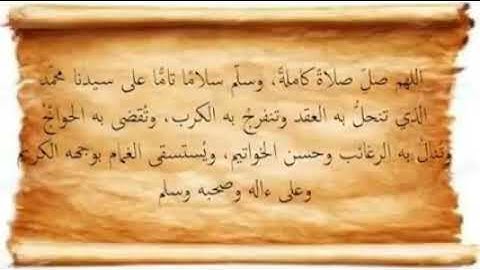 اللهم صلِّ صلاةً كاملةً، وسلِّم سلامًا تامًّا على سيدنا محمّد
الذي تنحلُّ به العقد وتنفرجُ به الكرب، وتُقضى به الحوائجُ
وتُنالُ به الرغائب وحسن الخواتيم، ويُستسقى الغمام بوجهه الكريم
وعلى ءاله وصحبه وسلم